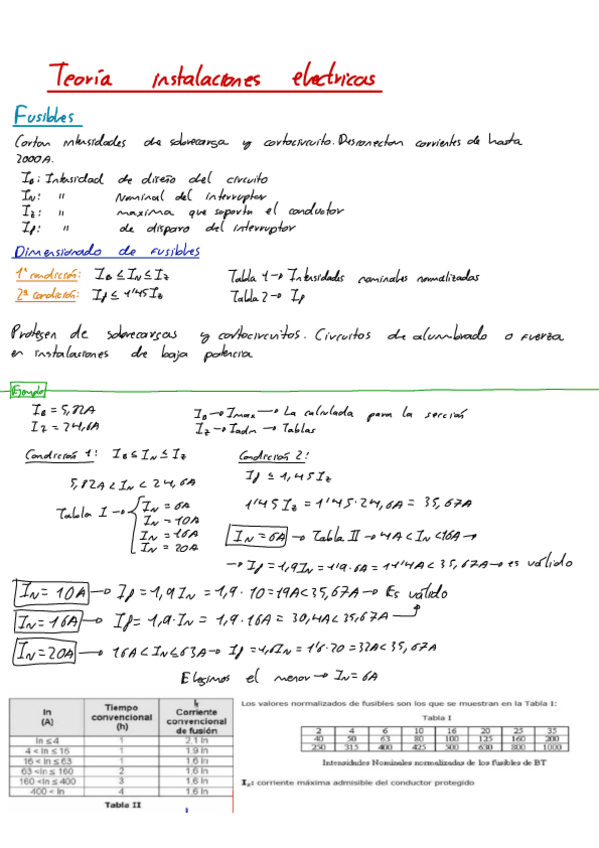 Teoría instalaciones electricas
Fusibles
Cortan intensidades de sobrecarga y cortocircuito. Desconectan corrientes de hasta
2000A.
I_B: Intensidad de diseño del circuito
I_N: " Nominal del interruptor
I_Z: " maxima que soporta el conductor
I_f: " de disparo del interruptor
Dimensionado de fusibles
1ª condición: I_B ≤ I_N ≤ I_Z Tabla 1 → Intensidades nominales normalizadas
2ª condición: I_f ≤ 1'45 I_Z Tabla 2 → I_f
Protegen de sobrecargas y cortocircuitos. Circuitos de alumbrado o fuerza
en instalaciones de baja potencia
Ejemplo
I_B = 5,82A I_B → Imax → La calculada para la sección
I_Z = 24,6A I_Z → Iadm → Tablas
Condición 1: I_B ≤ I_N ≤ I_Z Condición 2:
I_f ≤ 1,45 I_Z
5,82A < I_N < 24,6A
1'45 I_Z = 1'45 · 24,6A = 35,67A
Tabla I → I_N = 6A
I_N = 10A
I_N = 16A
I_N = 20A
I_N = 6A → Tabla II → 4A < I_N < 16A →
→ I_f = 1,9 I_N = 1'9 · 6A = 11'4A < 35,67A → es válido
I_N = 10A → I_f = 1,9 I_N = 1,9 · 10 = 19A < 35,67A → Es válido
I_N = 16A → I_f = 1,9 · I_N = 1,9 · 16A = 30,4A < 35,67A
I_N = 20A → 16A < I_N ≤ 63A → I_f = 1,6 I_N = 1'6 · 20 = 32A < 35,67A
Elegimos el menor → I_N = 6A
In (A) Tiempo convencional (h) If Corriente convencional de fusión
In ≤ 4 1 2,1 In
4 < In ≤ 16 1 1,9 In
16 < In ≤ 63 1 1,6 In
63 < In ≤ 160 2 1,6 In
160 < In ≤ 400 3 1,6 In
400 < In 4 1,6 In
Tabla II
Los valores normalizados de fusibles son los que se muestran en la Tabla I:
Tabla I
2 4 6 10 16 20 25 35
40 50 63 80 100 125 160 200
250 315 400 425 500 630 800 1000
Intensidades Nominales normalizadas de los fusibles de BT
I_z: corriente máxima admisible del conductor protegido